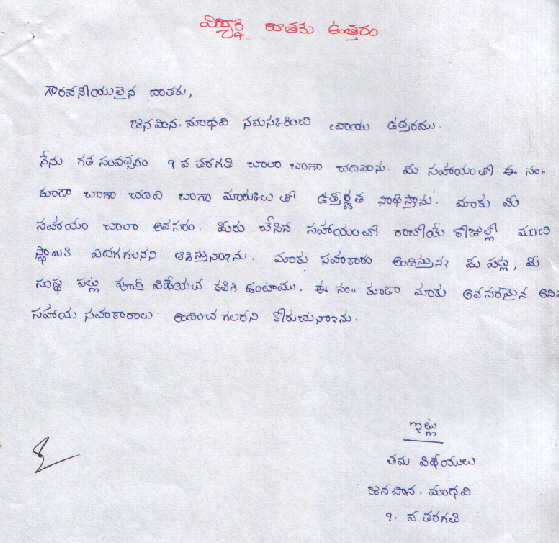 విద్యార్థి దాతకు ఉత్తరం
గౌరవనీయులైన దాతకు,
మాధవి నమస్కరించి వ్రాయు ఉత్తరము.
నేను గత సంవత్సరం 9 వ తరగతి చాలా బాగా చదివాను. మీ సహాయంతో ఈ సం॥
కూడా బాగా చదివి బాగా మార్కులతో ఉత్తీర్ణత సాధిస్తాను. మాకు మీ
సహాయం చాలా అవసరం. మీరు చేసిన సహాయంతో రాబోయే రోజుల్లో మంచి
స్థాయికి ఎదగగలనని ఆశిస్తున్నాను. మాకు సహకారం అందిస్తున్న మీ పట్ల, మీ
సంస్థ పట్ల కూడా విధేయత కలిగి ఉంటాము. ఈ సం॥ కూడా మాకు అవసరమైన
సహాయ సహకారాలు అందించ గలరని కోరుచున్నాను.
ఇట్లు
తమ విధేయులు
మాధవి
9. వ తరగతి